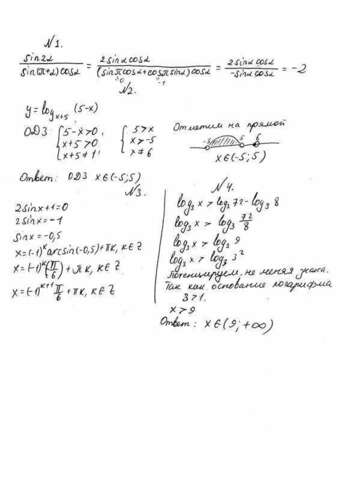 N1.
sin2α / sin(π+α)cosα = 2sinαcosα / (sinπcosα+cosπsinα)cosα = 2sinαcosα / -sinαcosα = -2
=0 =-1
N2.
y = log x+5 (5-x)
ОДЗ: { 5-x>0, { 5>x
x+5>0 x>-5
x+5≠1 x≠6
Отметим на прямой
-5 5 6
x∈(-5;5)
Ответ: ОДЗ x∈(-5;5)
N3.
2sinx+1=0
2sinx=-1
sinx=-0,5
x=(-1)^k arcsin(-0,5)+πk, k∈Z
x=(-1)^k(-π/6)+πk, k∈Z
x=(-1)^k+1 π/6 +πk, k∈Z
N4.
log3 x > log3 72 - log3 8
log3 x > log3 72/8
log3 x > log3 9
log3 x > log3 3²
Потенцируем, не меняя знака.
Так как основание логарифма
3>1.
x>9
Ответ: x∈(9;+∞)